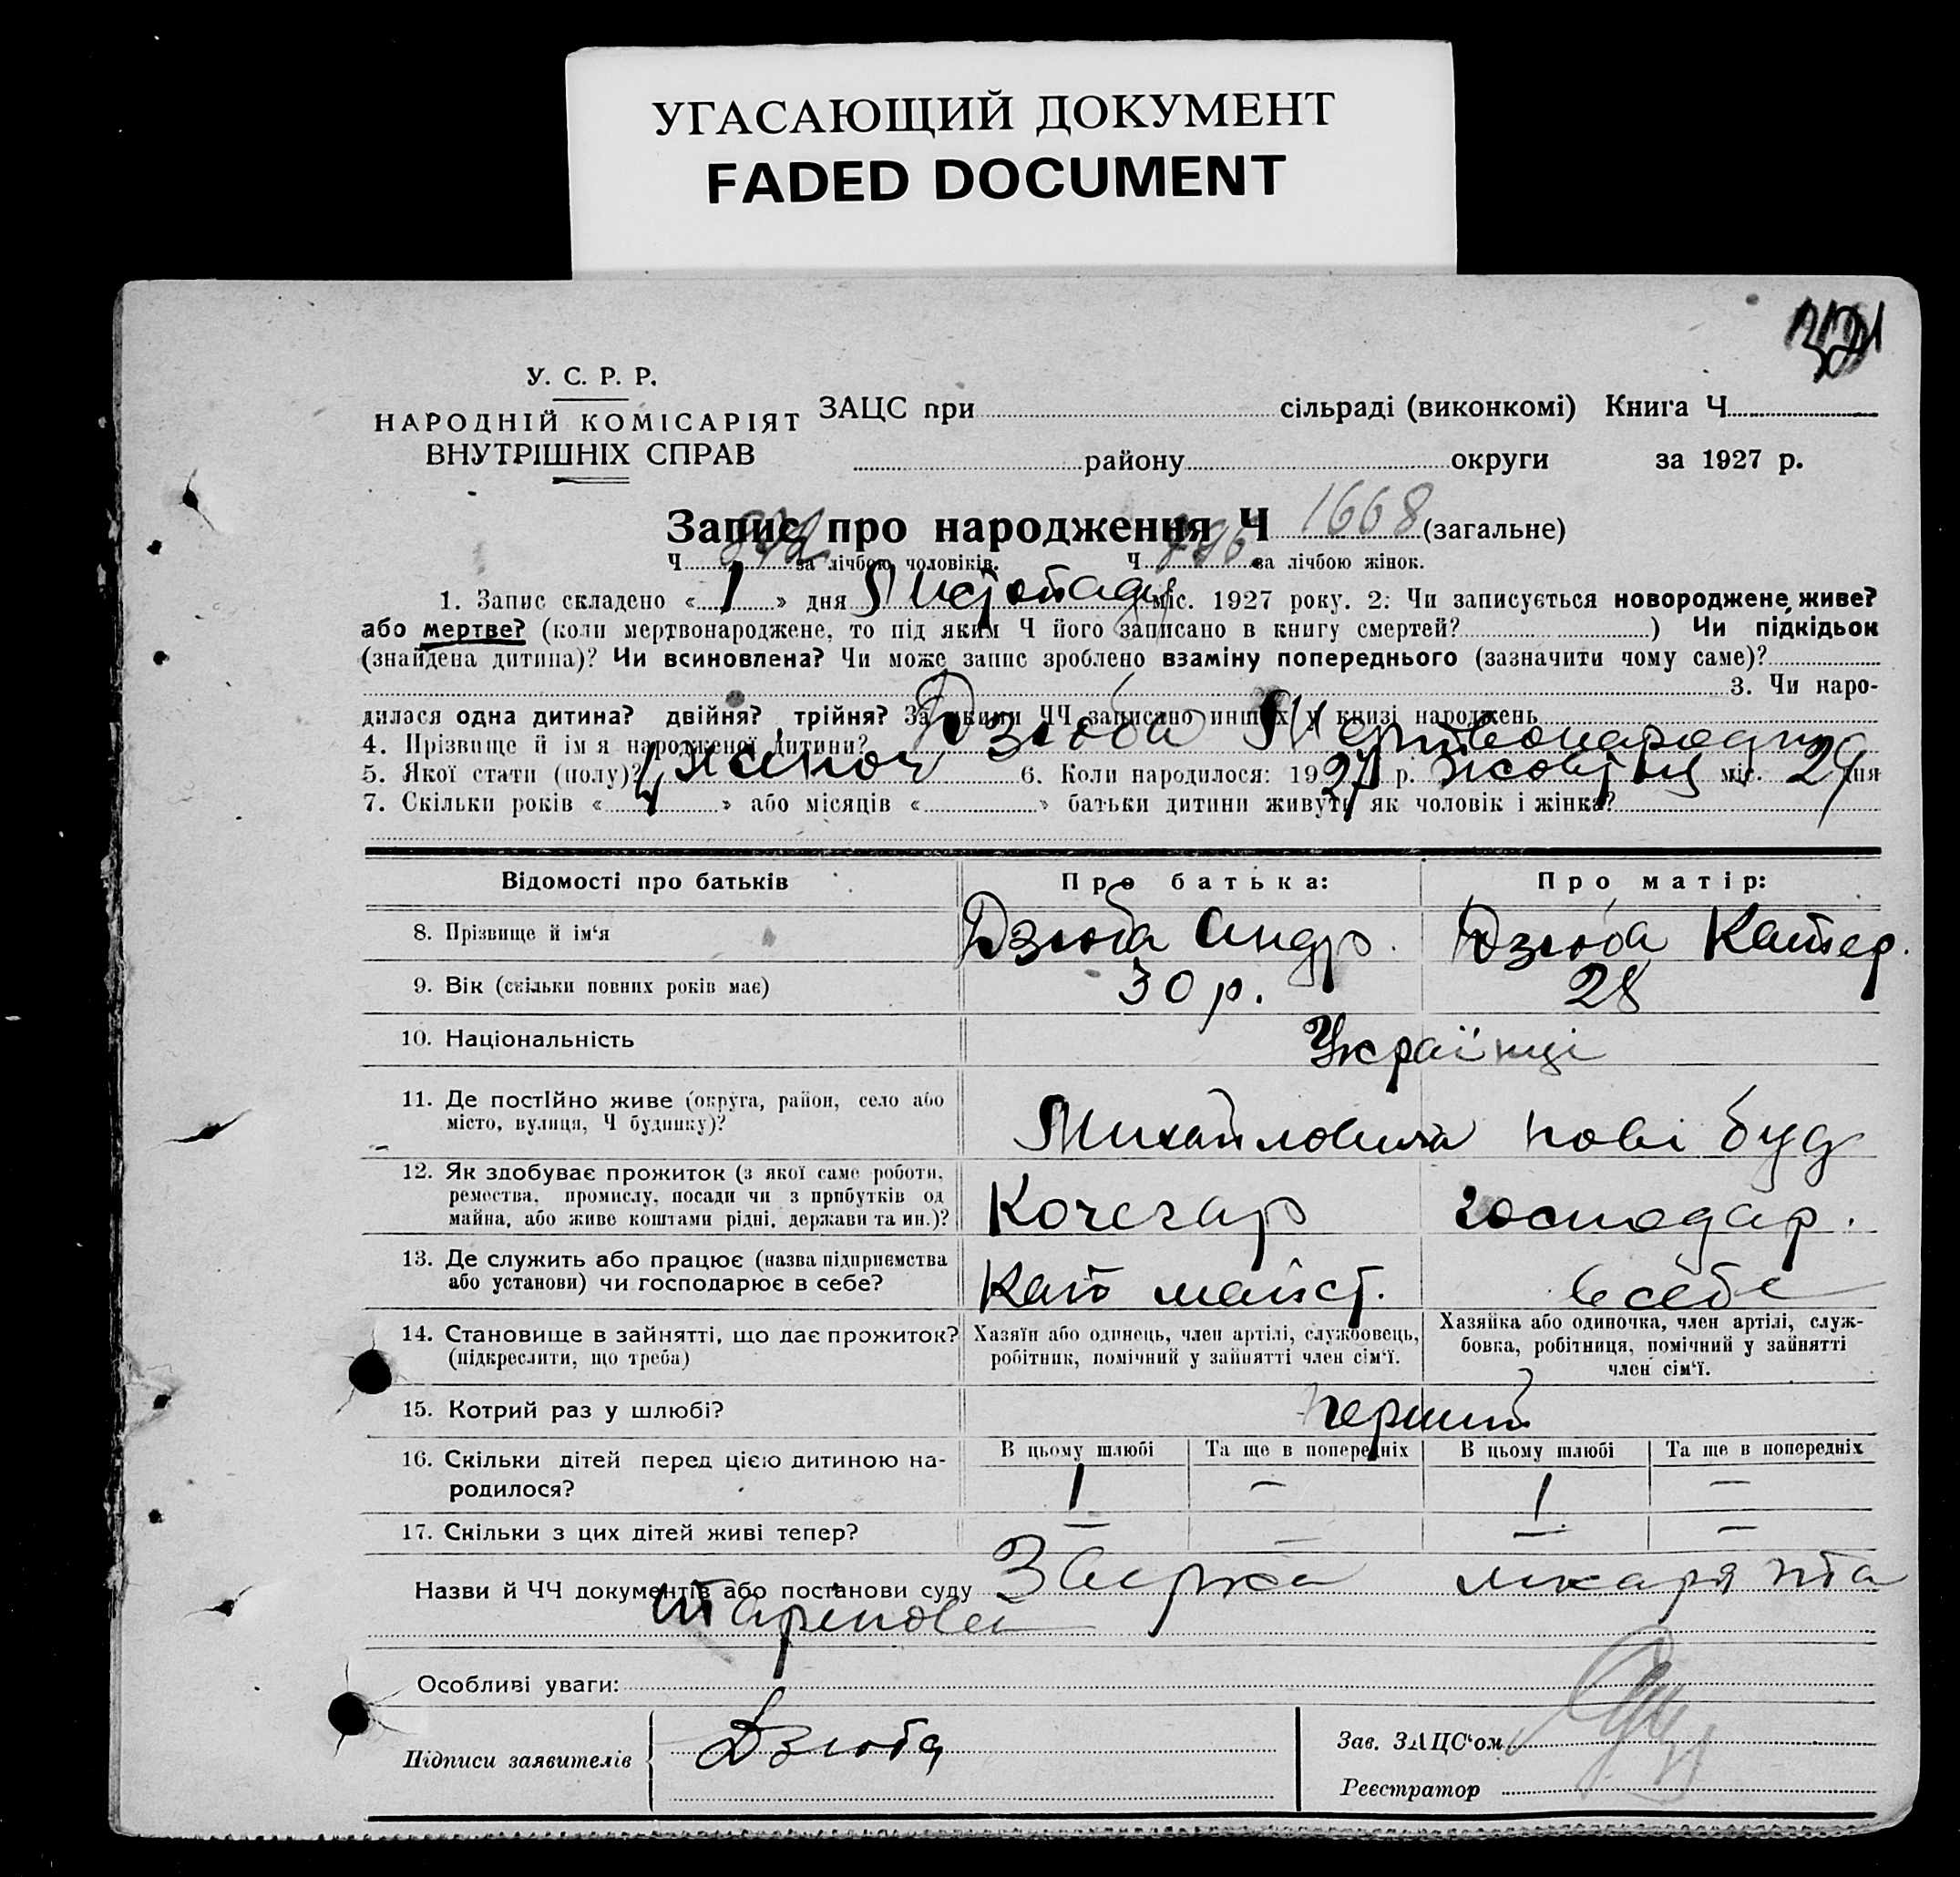 УГАСАЮЩИЙ ДОКУМЕНТ
FADED DOCUMENT
У. С. Р. Р.
НАРОДНІЙ КОМІСАРІЯТ
ВНУТРІШНІХ СПРАВ
ЗАЦС при сільраді (виконкомі) Книга Ч.
району округи за 1927 р.
Запис про народження Ч 1668 (загальне)
Ч за лічбою чоловіків. Ч за лічбою жінок.
1. Запис складено « 1 » дня Листопаду міс. 1927 року. 2: Чи записується новороджене живе?
або мертве? (коли мертвонароджене, то під яким Ч його записано в книгу смертей? ) Чи підкідьок
(знайдена дитина)? Чи всиновлена? Чи може запис зроблено взаміну попереднього (зазначити чому саме)?
3. Чи наро-
дилася одна дитина? двійня? трійня? За якими ЧЧ записано инших у книзі народжень
4. Прізвище й ім я народженої дитини? Дзюба Мертвонароджена
5. Якої стати (полу)? жіноч 6. Коли народилося: 1927 р. жовтня міс. 29 дня
7. Скільки років « 4 » або місяців « » батьки дитини живуть як чоловік і жінка?
Відомості про батьків Про батька: Про матір:
8. Прізвище й ім'я Дзюба Андр. Дзюба Катер.
9. Вік (скільки повних років має) 30 р. 28
10. Національність Українці
11. Де постійно живе (округа, район, село або
місто, вулиця, Ч будинку)? Михайловка нові буд
12. Як здобуває прожиток (з якої саме роботи,
ремества, промислу, посади чи з прибутків од
майна, або живе коштами рідні, держави та ин.)? Кочегар господар.
13. Де служить або працює (назва підприємства
або установи) чи господарює в себе? Кат майст. в себе
14. Становище в зайнятті, що дає прожиток?
(підкреслити, що треба)
Хазяїн або одинець, член артілі, службовець,
робітник, помічний у зайнятті член сім'ї.
Хазяйка або одиночка, член артілі, служ-
бовка, робітниця, помічний у зайнятті
член сім'ї.
15. Котрий раз у шлюбі? перший
В цьому шлюбі Та ще в попередніх В цьому шлюбі Та ще в попередніх
16. Скільки дітей перед цією дитиною на-
родилося? 1 – 1 –
17. Скільки з цих дітей живі тепер? – – – –
Назви й ЧЧ документів або постанови суду лікаря
Особливі уваги:
Підписи заявителів Дзюба
Зав. ЗАЦС'ом
Реєстратор